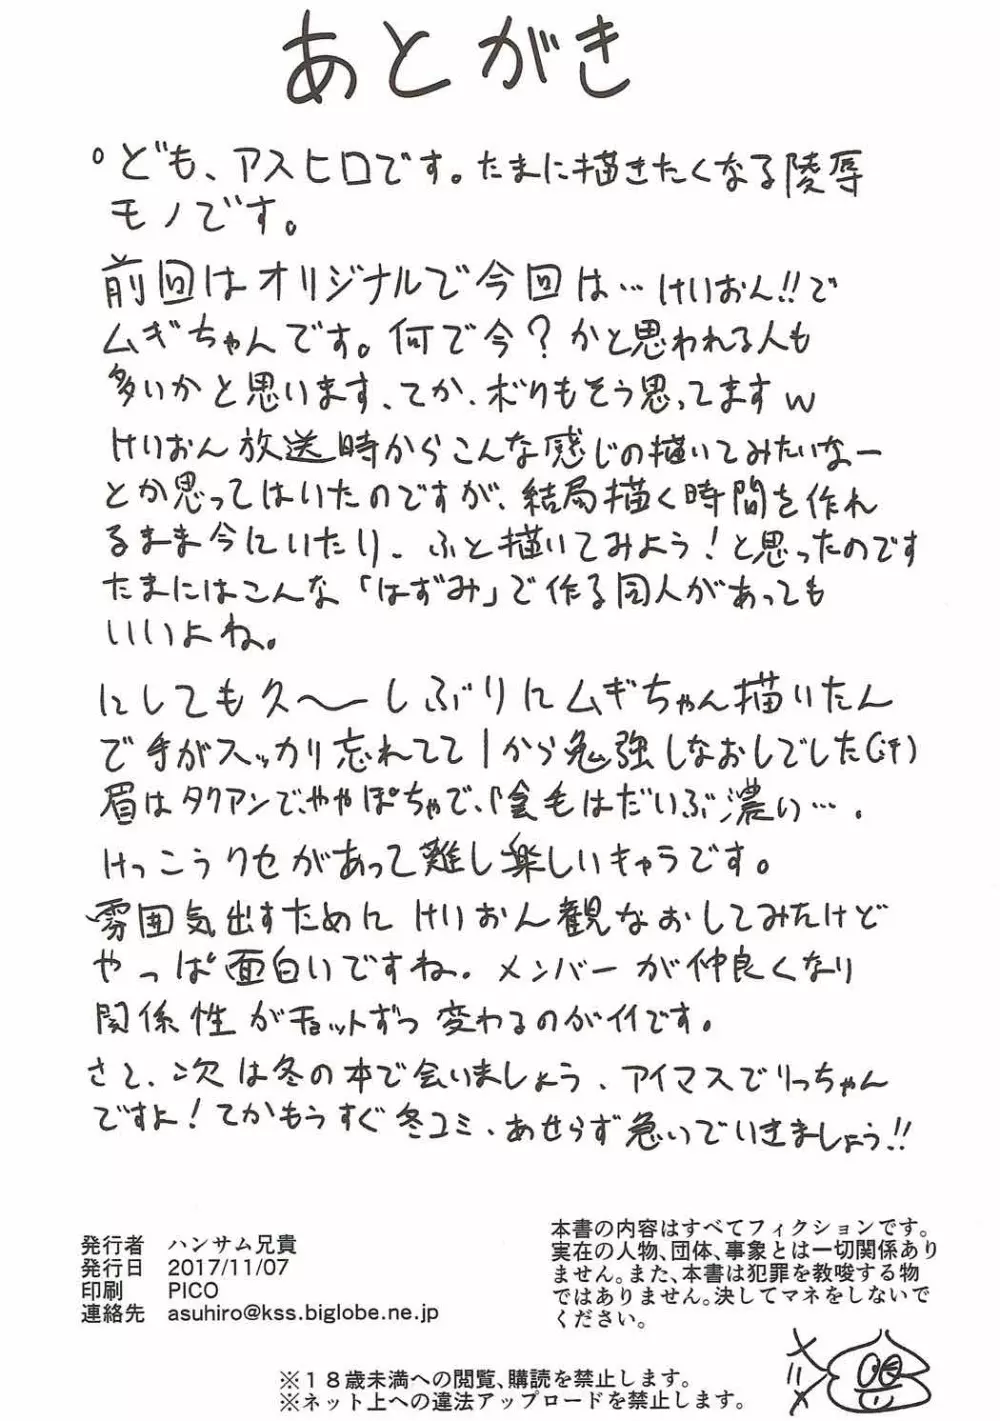 あとがき
どども、アスヒロです。たまに描きたくなる陵辱
モノです。
前回はオリジナルで今回は…けいおん!!で
ムギちゃんです。何で今？かと思われる人も
多いかと思います、てか、ボクもそう思ってますw
けいおん放送時からこんな感じの描いてみたいなー
とか思ってはいたのですが、結局描く時間を作れ
るまま今にいたり、ふと描いてみよう！と思ったのです
たまにはこんな「はずみ」で作る同人があっても
いいよね。
にしても久〜しぶりにムギちゃん描いたん
で手がスッカリ忘れてて1から勉強しなおしでした(汗)
眉はタクアンで、ややぽちゃで、陰毛はだいぶ濃い…。
けっこうクセがあって難し楽しいキャラです。
雰囲気出すためにけいおん観なおしてみたけど
やっぱ面白いですね。メンバーが仲良くなり
関係性がチョットずつ変わるのがイイです。
さて、次は冬の本で会いましょう、アイマスでりっちゃん
ですよ！てかもうすぐ冬コミ、あせらず急いでいきましょう!!
発行者 ハンサム兄貴
発行日 2017/11/07
印刷 PICO
連絡先 asuhiro@kss.biglobe.ne.jp
本書の内容はすべてフィクションです。
実在の人物、団体、事象とは一切関係あり
ません。また、本書は犯罪を教唆する物
ではありません。決してマネをしないで
ください。
※１８歳未満への閲覧、購読を禁止します。
※ネット上への違法アップロードを禁止します。